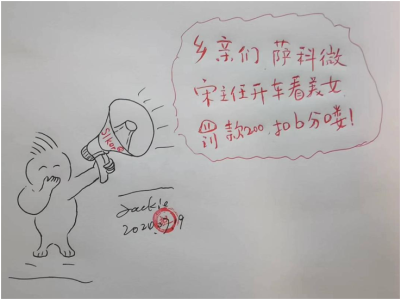 乡亲们 萨科微
宋主任开车看美女
罚款200 扣6分喽!
Slkor
Jackie